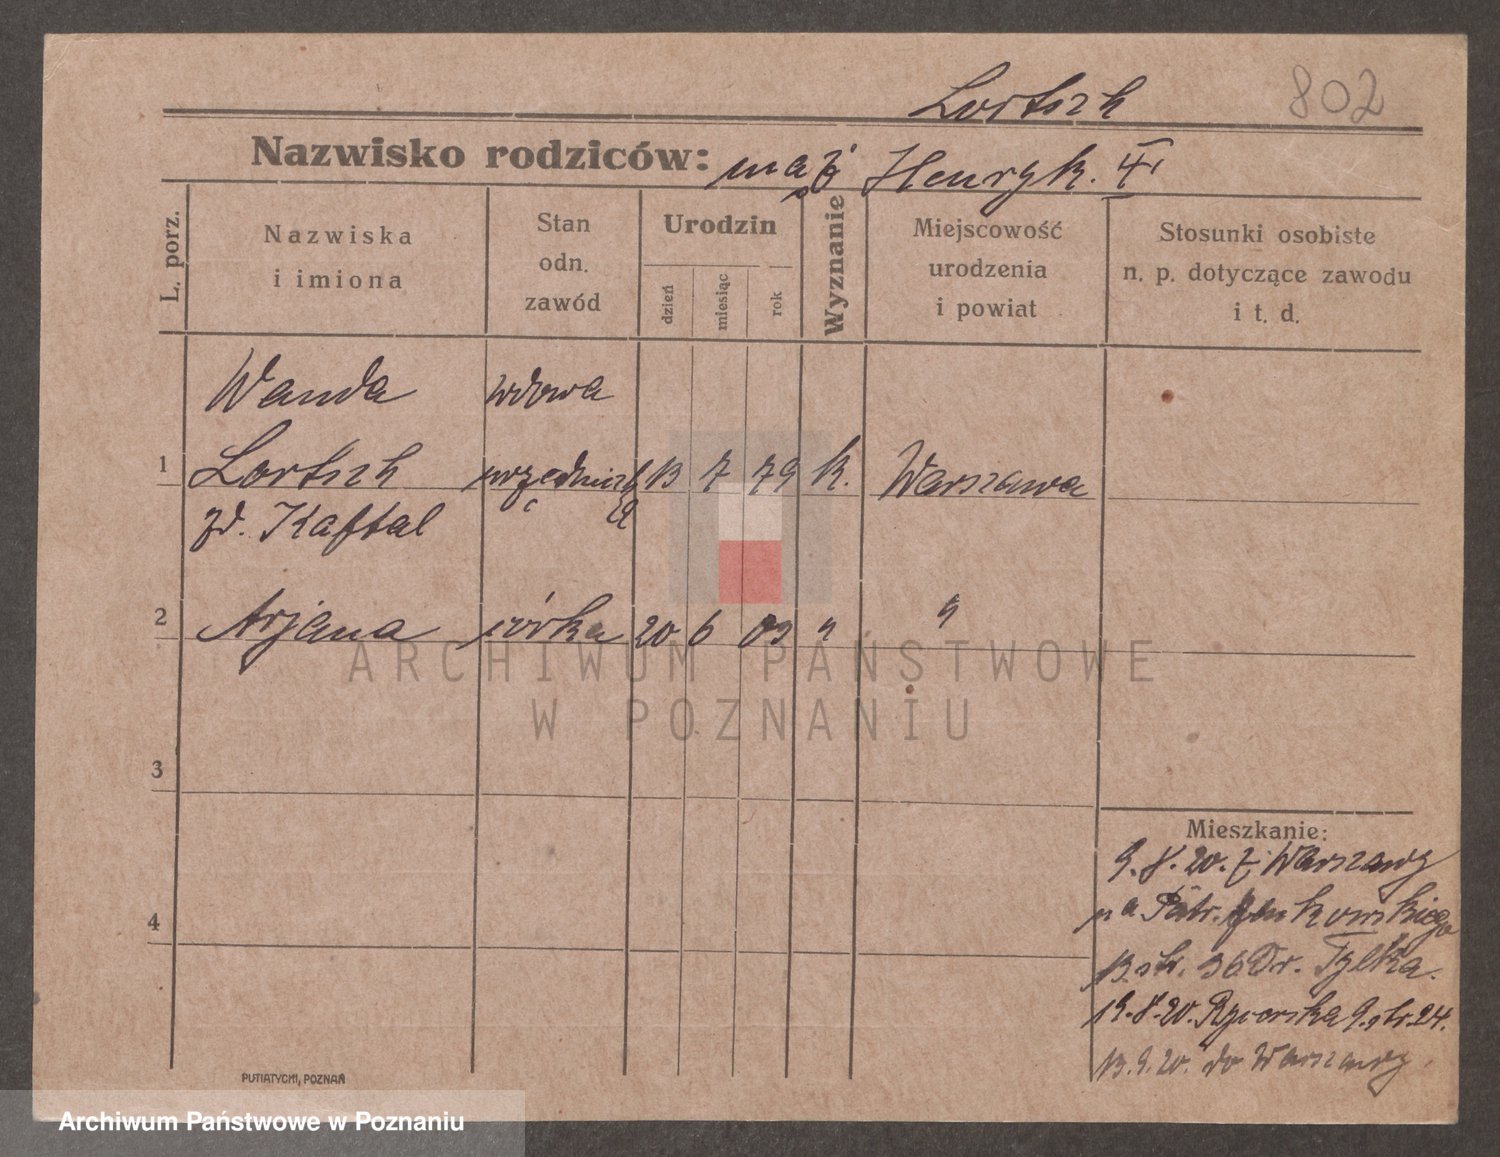 Lortsch 802
Nazwisko rodziców: mąż Henryk
L. porz.
Nazwiska
i imiona
Stan
odn.
zawód
Urodzin
dzień
miesiąc
rok
Wyznanie
Miejscowość
urodzenia
i powiat
Stosunki osobiste
n. p. dotyczące zawodu
i t. d.
Wanda wdowa
1 Lortsch urzędniczka 13 7 79 k. Warszawa
zd. Kaftal
2 Arjana córka 20 6 03 " "
ARCHIWUM PAŃSTWOWE
W POZNANIU
3
4
Mieszkanie:
9.8.20. z Warszawy
na Patr.
13 str. 36 Dr. Tylka.
19.8.20. Rycerska 9. str. 24.
13.9.20. do Warszawy
PUTIATYCKI, POZNAŃ
Archiwum Państwowe w Poznaniu